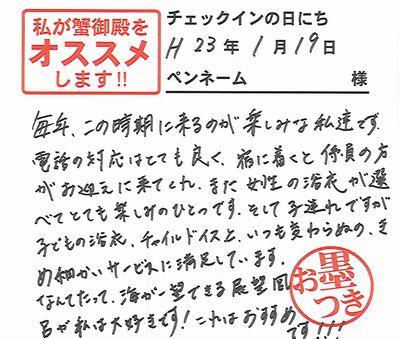 私が蟹御殿を
オススメ
します!!
チェックインの日にち
H 23年 1月 19日
ペンネーム 様
毎年、この時期に来るのが楽しみな私達です。
電話の対応はとても良く、宿に着くと係員の方
がお迎えに来てくれ、また女性の浴衣が選
べてとても楽しみのひとつです。そして子連れですが
子どもの浴衣、チャイルドイスと、いつも変わらぬの、き
め細かいサービスに満足しています。
なんてたって、海が一望できる展望風
呂が私は大好きです!これはおすすめ
です!!!
お墨つき